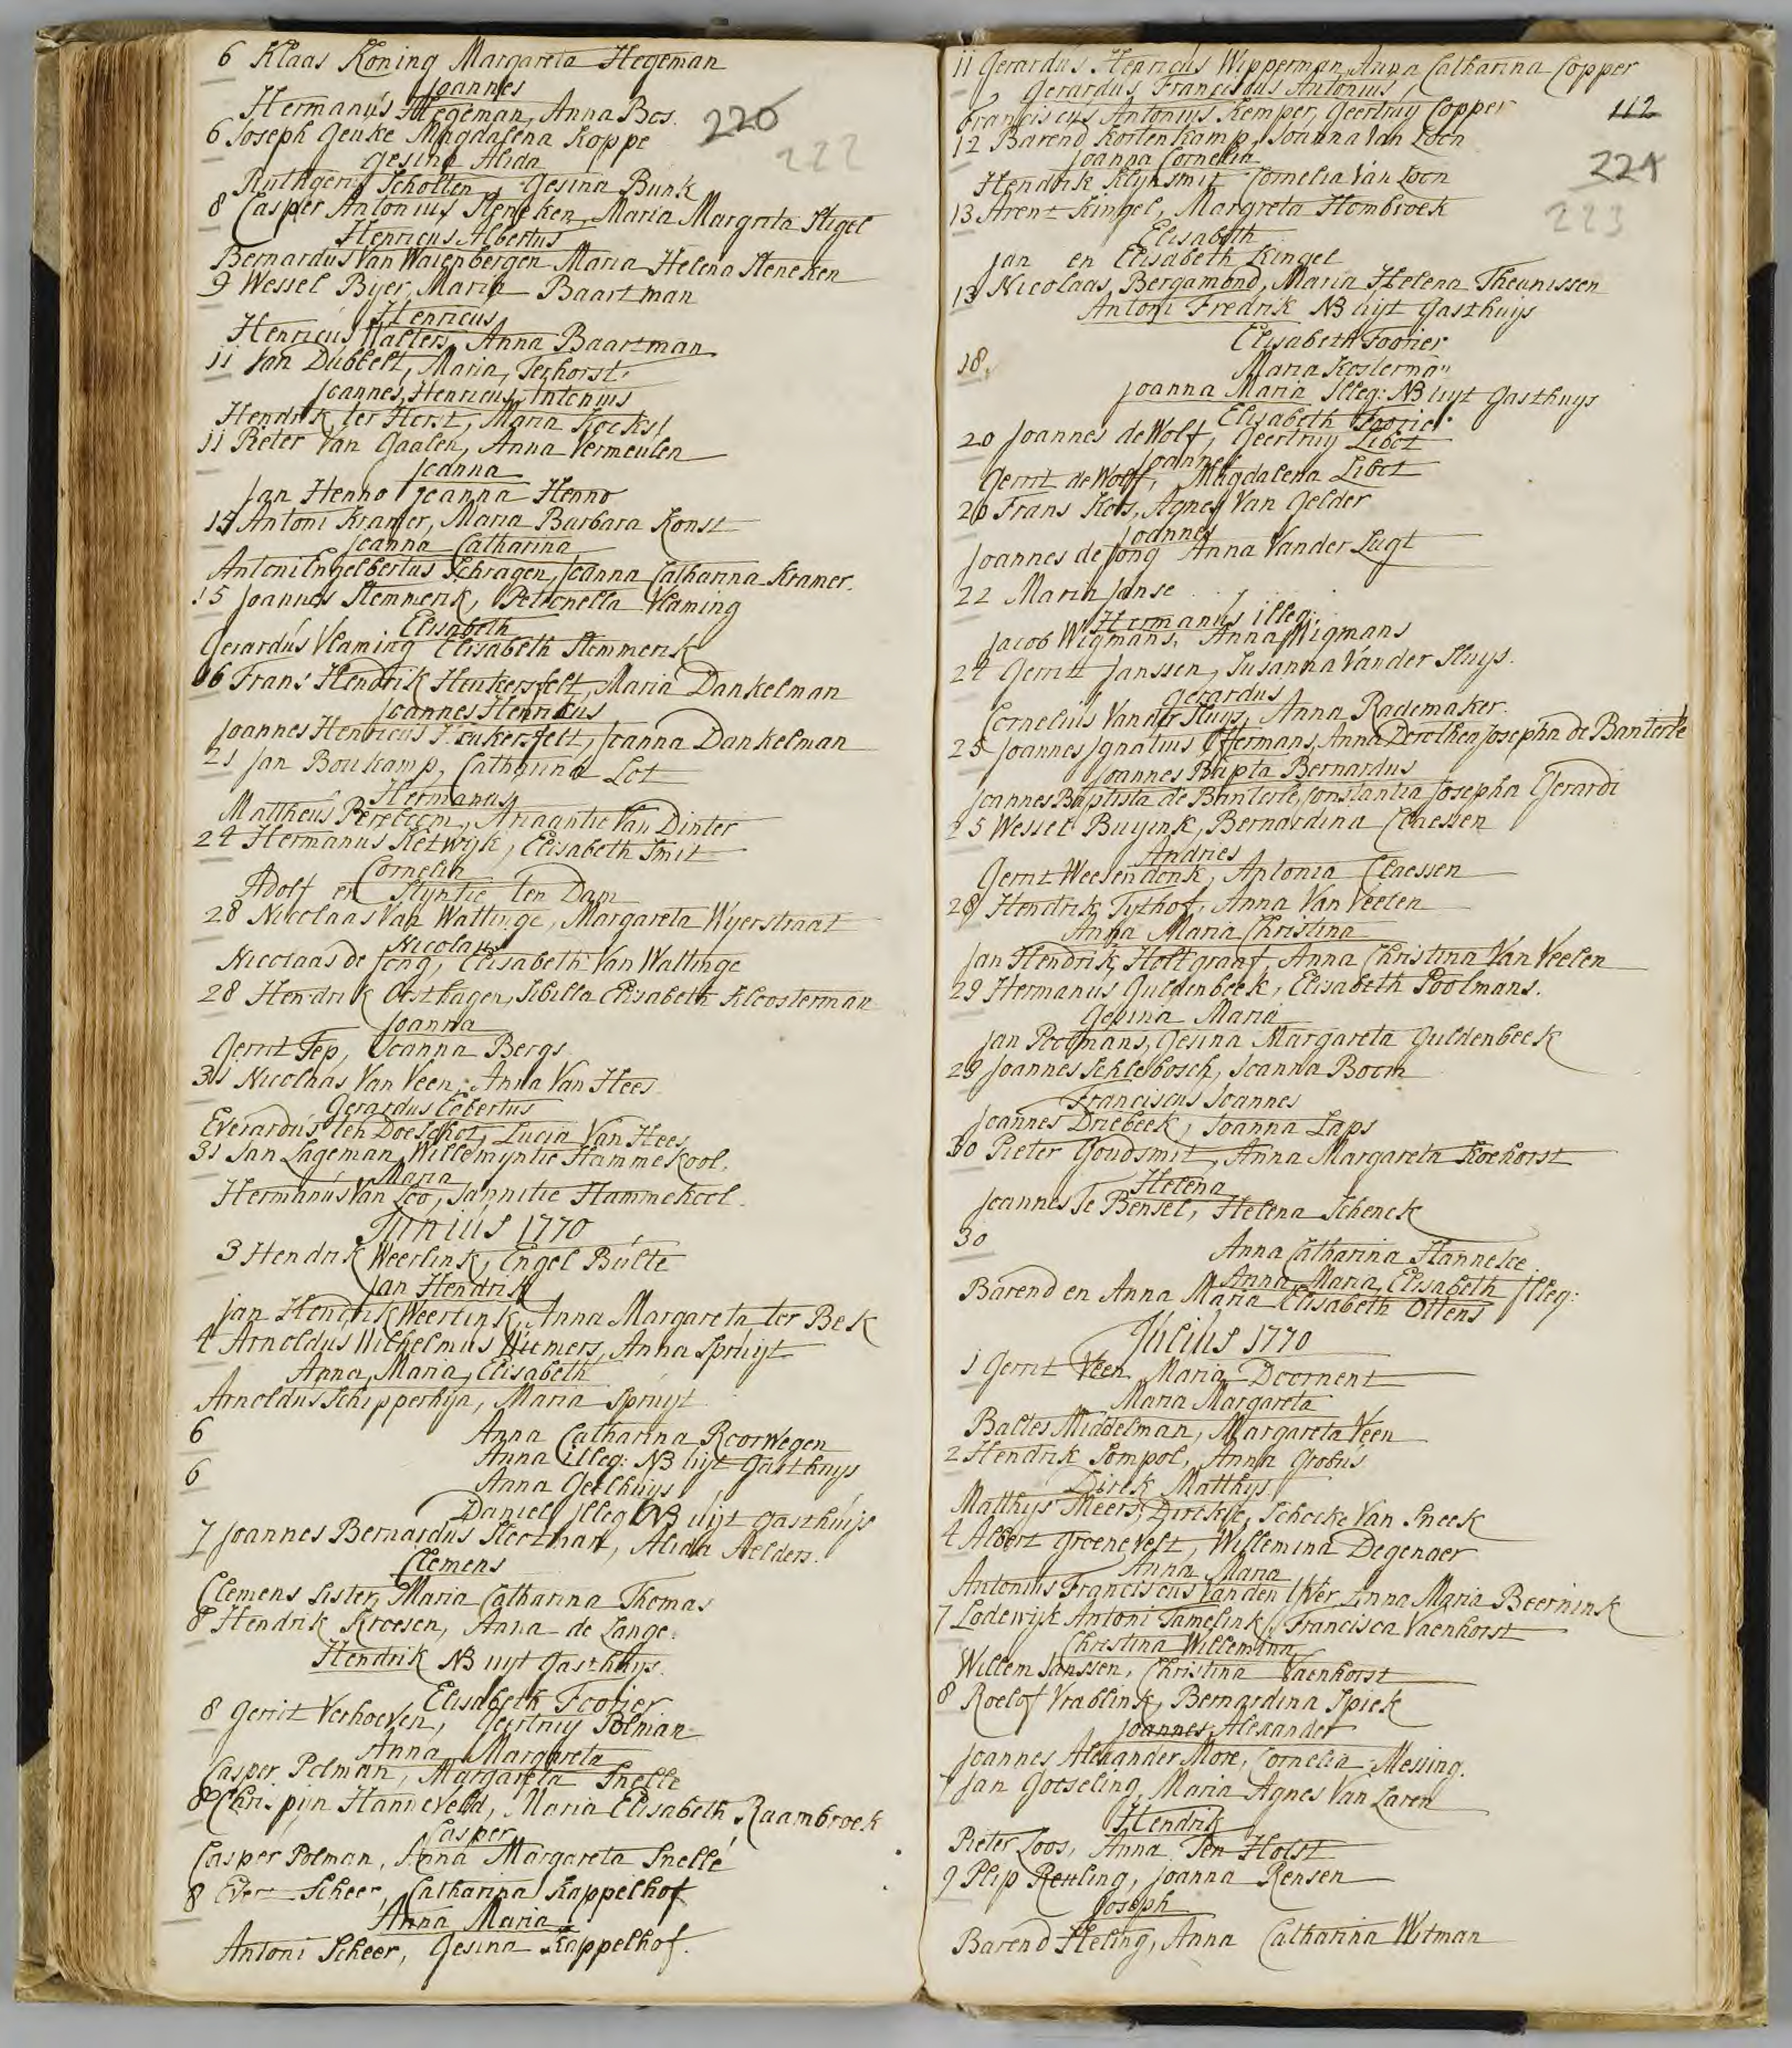 6 Klaas Koning Margareta Hegeman
Joannes
Hermanús Hegeman, Anna Bos.
220
6 Joseph Geuke Magdalena Koppe
222
Gesina Alida
Ruthgerus Scholten, Gesina Bunk
8 Casper Antonius Steneken, Maria Margrita Stigel
Henricus Albertus
Bernardús Van Waienbergen Maria Helena Steneken
9 Wessel Byer, Maria Baartman
Henricus
Henricús Walters, Anna Baartman
11 Jan Dubbelt, Maria, Terhorst
Joannes, Henricus, Antonius
Hendrik ter Horst, Maria Kocks
11 Pieter Van Gaalen, Anna Vermeulen
Joanna
Jan Henno Joanna Henno
15 Antoni Kramer, Maria Barbara Konst
Joanna Catharina
Antoni Engelbertus Schragen, Joanna Catharina Kramer.
15 Joannes Stemmerik, Petronella Vlaming
Elisabeth
Gerardús Vlaming Elisabeth Stemmerik
16 Frans Hendrik Heukersfelt, Maria Dankelman
Joannes Henricus
Joannes Henricus Heukersfelt, Joanna Dankelman
21 Jan Boukamp, Catharina Lot
Hermanus
Mattheus Pereboom, Ariaantie Van Dinter
24 Hermanus Ketwyk, Elisabeth Smit
Cornelia
Adolf en Styntie Ten Dam
28 Nicolaas Van Wattinge, Margareta Wyerstraat
Nicolaus
Nicolaas de Jong, Elisabeth Van Wattinge
28 Hendrik Oosthagen, Sibilla Elisabeth Kloosterman
Joanna
Gerrit Fep, Joanna Bergs
31 Nicolaas Van Veen, Anna Van Hees
Gerardus Egbertus
Everardús ten Doeschot, Lucia Van Hees
31 Jan Lageman, Willemyntie Hammekool,
Maria
Hermanús Van Loo, Jannitie Hammekool.
Junius 1770
3 Hendrik Weerlink, Engel Bulte
Jan Hendrik
Jan Hendrik Weertink, Anna Margareta ter Bek
4 Arnoldus Wilhelmus Wiemers, Anna Spruyt
Anna, Maria, Elisabeth
Arnoldus Schipperhyn, Maria Spruyt
6 Anna Catharina Roorwegen
Anna illeg: NB uyt Gasthuys
6 Anna Geelhuys
Daniel Illeg NB uyt gasthuys
7 Joannes Bernardus Slootman, Alida Aelders.
Clemens
Clemens Sister, Maria Catharina Thomas
8 Hendrik Kroesen, Anna de Lange.
Hendrik NB uyt gasthuys.
Elisabeth Foorier
8 Gerrit Verhoeven, Geertruy Polman
Anna Margareta
Casper Polman, Margareta Snelle
8 Chrispijn Hanneveld, Maria Elisabeth Raambroek
Casper
Casper Polman, Anna Margareta Snelle
8 Evert Scheer, Catharina Kappelhof
Anna Maria
Antoni Scheer, Gesina Kappelhof.
11 Gerardús Henricús Wipperman, Anna Catharina Copper
Gerardus Franciscus Antonius
Franciscús Antonius Kemper, Geertruy Copper
112
12 Barend Kortenkamp, Joanna Van Loon
Joanna Cornelia
221
Hendrik Klynsmit Cornelia Van Loon
13 Arent Kingel, Margreta Hombroek
223
Elisabeth
Jan en Elisabeth Kingel
13 Nicolaas, Bergamond, Maria Helena Theunissen
Antoni Fredrik NB uyt Gasthuys
Elisabeth Foorier
18. Maria Kosterman
Joanna Maria Illeg: NB uyt Gasthuys
Elisabeth Foorier
20 Joannes de Wolf, Geertruy Libot
Joannes
Gerrit de Wolff, Magdalena Libot
20 Frans Kos, Agnes Van Gelder
Joannes
Joannes de Jong Anna Vander Lugt
22 Maria Janse
Hermanus illeg:
Jacob Wigmans, Anna Wigmans
24 Gerrit Janssen, Susanna Vander Sluys.
Gerardus
Cornelius Vander Sluys, Anna Rademaker.
25 Joannes Ignatius Offermans, Anna Dorothea Josepha de Banterlé
Joannes Bapta Bernardus
Joannes Baptista de Banterlé, Constantia Josepha Gerardi
25 Wessel Buyink, Bernardina Claessen
Andries
Gerrit Weesendonk, Antonia Claessen
28 Hendrik Tythof, Anna Van Veelen
Anna Maria Christina
Jan Hendrik Holtgraaf, Anna Christina Van Veelen
29 Hermanus Guldenbeek, Elisabeth Poolmans.
Gesina Maria
Jan Poolmans, Gesina Margareta Guldenbeek
29 Joannes Schlebosch, Joanna Boom
Franciscus Joannes
Joannes Driebeek, Joanna Laps
30 Pieter Goudsmit, Anna Margareta Koehorst
Helena
Joannes Te Bensel, Helena Schenck
30 Anna Catharina Hanneke
Anna, Maria, Elisabeth Illeg:
Barend en Anna Maria Elisabeth Ottens
Julius 1770
1 Gerrit Veen Maria Doornent
Maria Margareta
Baltes Middelman, Margareta Veen
2 Hendrik Pompol, Anna Grobus
Dirck Matthys
Matthys Meers, Dirckje, Schocke Van Sneek
4 Albert Groenevelt, Willemina Degenaer
Anna Maria
Antonius Franciscus Vanden Yver Anna Maria Beernink
7 Lodewijk Antoni Tamelink, Francisca Vaenhorst
Christina Willemina
Willem Janssen, Christina Vaenhorst
8 Roelof Vrablink, Bernardina Spiek
Joannes Alexander
Joannes Alexander More, Cornelia Messing.
Jan Goeseling, Maria Agnes Van Laren
Hendrik
Pieter Loos, Anna Ten Holst
9 Plip Reuling, Joanna Rensen
Joseph
Barend Heling, Anna Catharina Witman